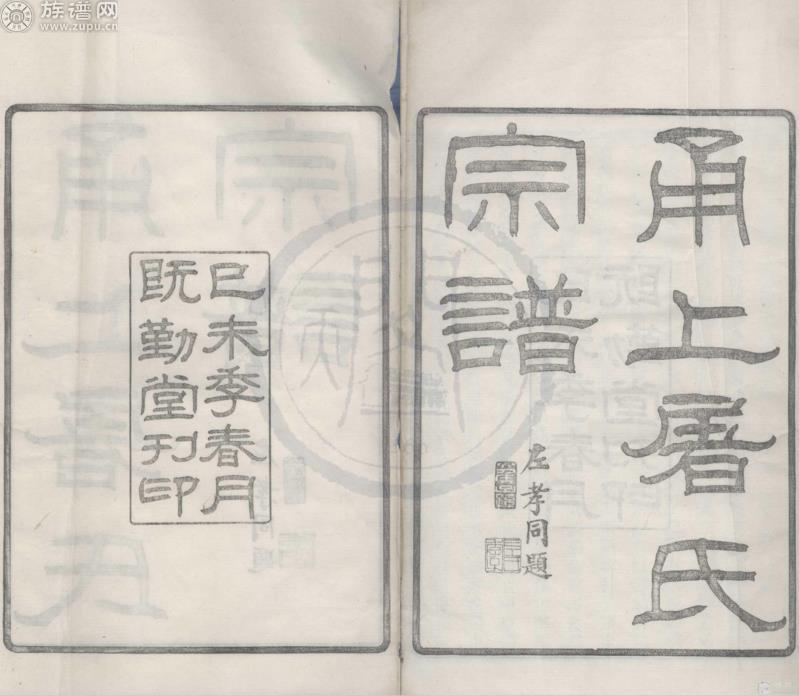 族谱网
www.zupu.cn
甬上屠氏
宗譜
左孝同題
己未季春月
既勤堂刊印